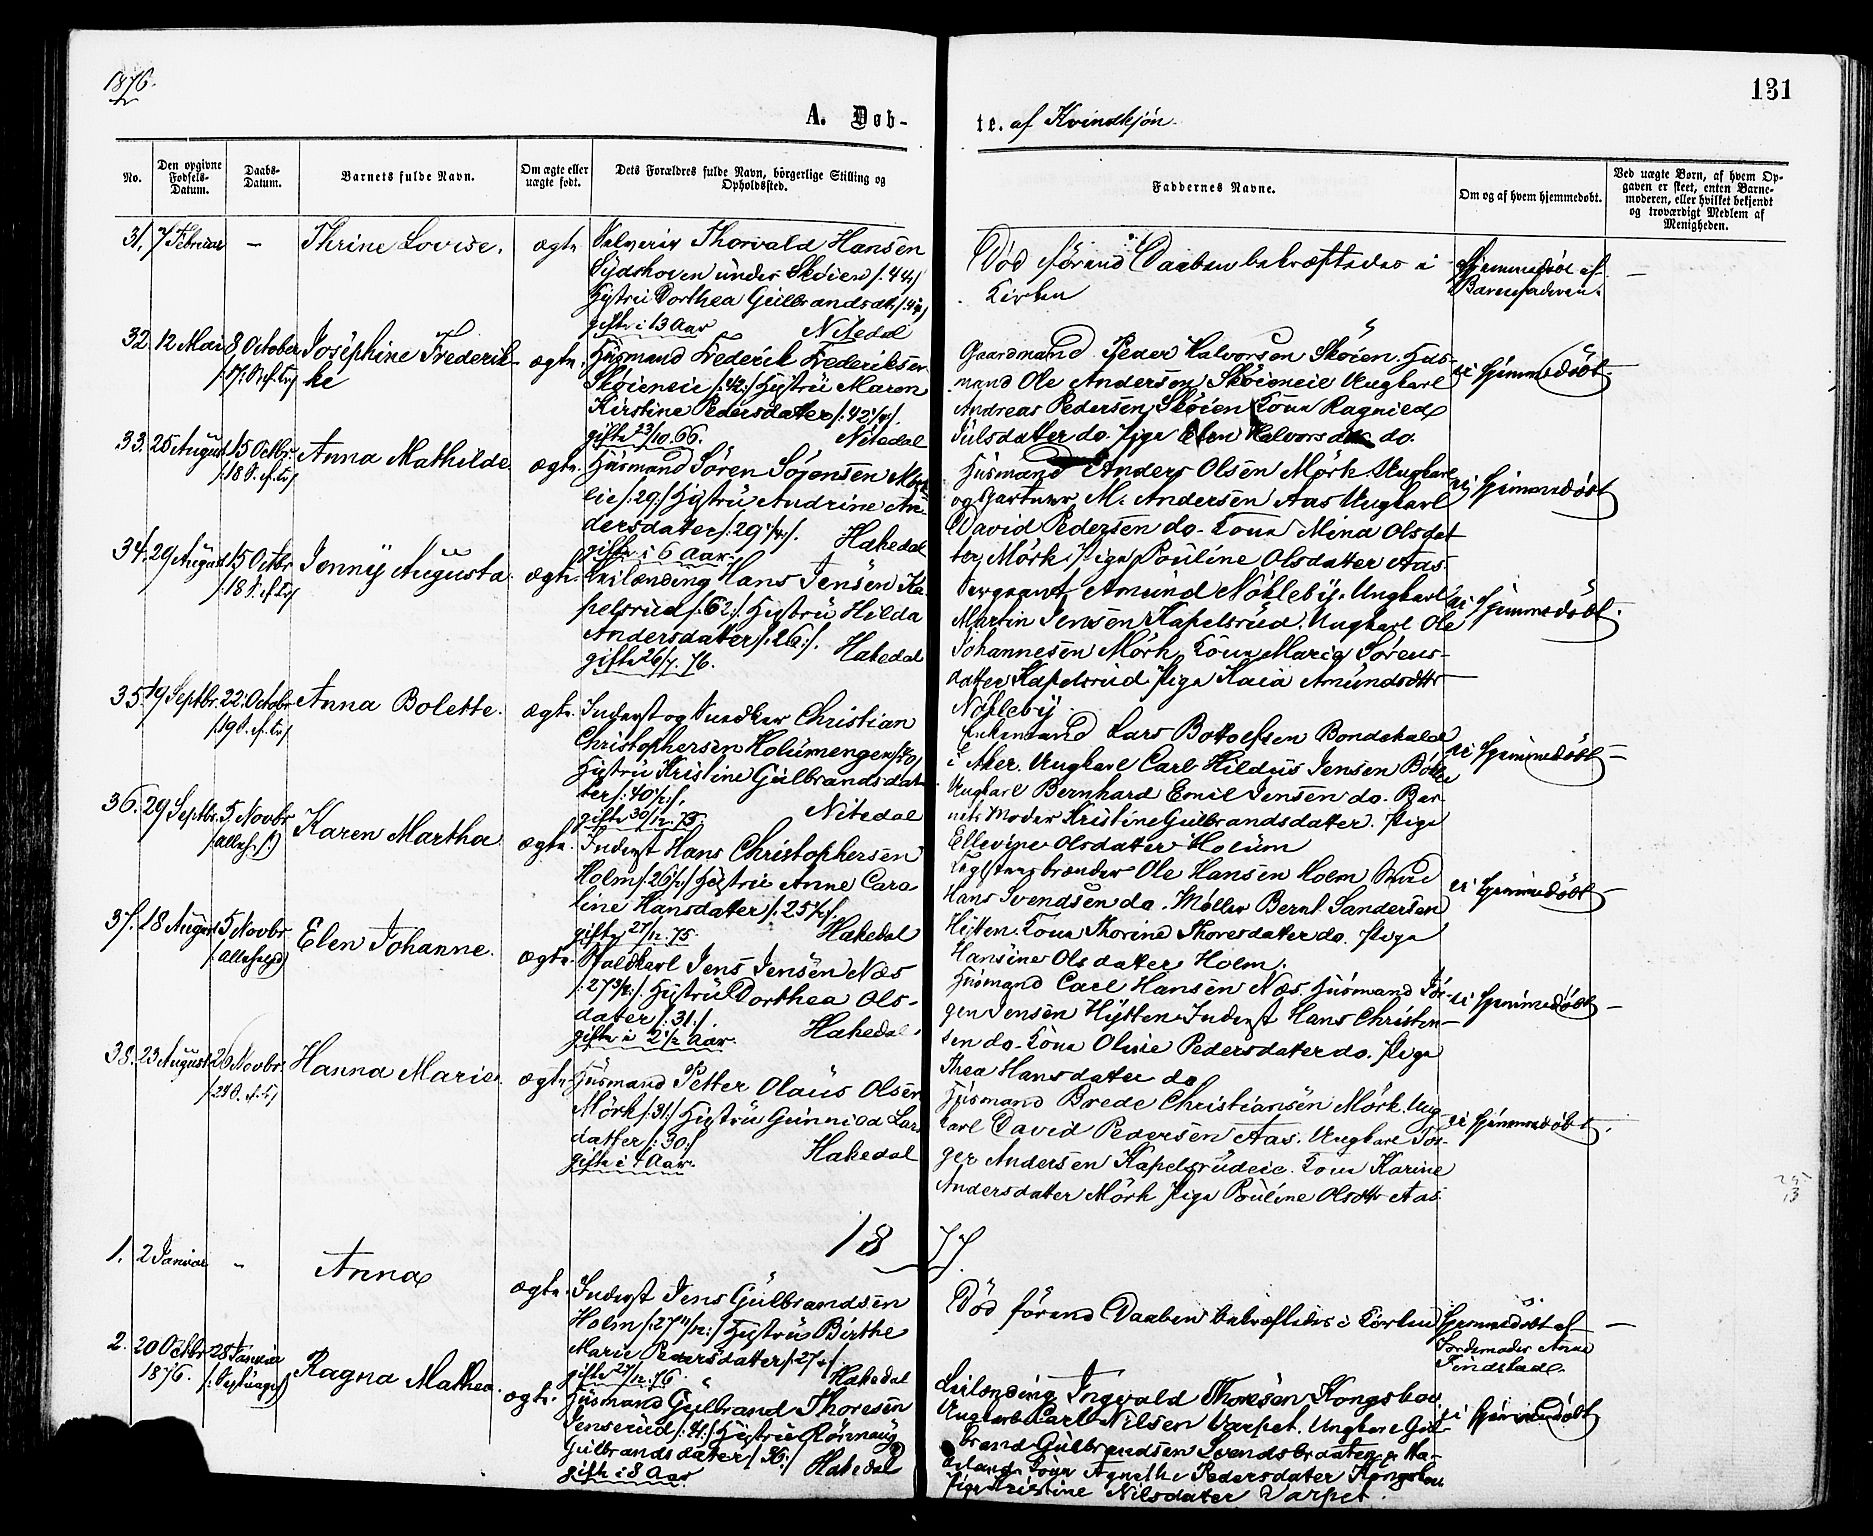 1876.
131
A. Døb-
te. af Kvindkjön.
No.
Den opgivne Fødsels-Datum.
Daabs-Datum.
Barnets fulde Navn.
Om ægte eller uægte født.
Dets Forældres fulde Navn, börgerlige Stilling og Opholdssted.
Faddernes Navne.
Om og af hvem hjemmedøbt.
Ved uægte Born, af hvem Opgaven er skeet, enten Barnemoderen, eller hvilket bekjendt og troværdigt Medlem af Menigheden.
31. 7 Februar — Thrine Lovise. ægte
Thorvald Hansen
under Skøien /:44:/
Hystru Dorthea Gulbrandsdtr
gifte i 13 Aar Nitedal
Död förend Daaben bekræftedes i
Kirken
Hjemmedöbt af
Barnefaderen.
—
32. 12 Mai 8 October Josephine Frederik-
ke
ægte.
Husmand Frederik Frederiksen
Skøieneie /:42:/ Hystru Maren
Kirstine Pedersdatter /:42½:/.
gifte 23/10.66. Nitedal
Gaardmand Peder Halvorsen Skøien. Hus-
mand Ole Andersen Skøieneie Ungkarl
Andreas Pedersen Skøien Kona Ragnild
Julsdatter do. Pige Elen Halvorsdtr do.
ei hjemmedöbt.
33. 25 August 15 Octbr. Anna Mathilde. ægte.
/:18 S. ef. Tr/
Husmand Sören Sörensen Mörk-
eie /:29:/ Hystru Andrine An-
dersdatter /:29¼:/.
gifte i 6 Aar. Hakedal
Husmand Anders Olsen Mörk Ungkarl
og Gartner M. Andersen Aas Ungkarl
David Pedersen do. Kona Mina Olsdat
ter Mörk Pige Pouline Olsdatter Aas.
ei hjemmedöbt
34. 29 August 15 Octbr Jenny Augusta. ægte.
/:18 S. ef. Tr/
Leilænding Hans Jensen Ka-
pelsrud /:62:/ Hystru Hilda
Andersdatter /:26:/.
gifte 26/7. 76. Hakedal
Sergeant Amund Nökleby. Ungkarl
Martin Jensen Kapelsrud. Ungkarl Ole
Johannesen Mörk. Kona Maria Sörens-
datter Kapelsrud Pige Kaia Amundsdtr
Nökleby.
ei hjemmedöbt.
35. 14 Septbr. 22. Octobr Anna Bolette. ægte.
/:19 S. ef. Tr/
Inderst og Snedker Christian
Christophersen Holumengen
Hystru Kristine Gulbrandsdat
ter /:40½:/.
gifte 30/12. 75 Nitedal
Enkemand Lars Bottolfsen Bondekald
i Aker. Ungkarl Carl Hildus Jensen
Ungkarl Bernhard Emil Jensen do. Bar-
nets Moder Kristine Gulbrandsdatter. Pige
Ellevine Olsdatter Holum
ei hjemmedöbt —
36. 29 Septbr. 5 Novbr Karen Martha ægte.
Inderst Hans Christophersen
Holm /:26½:/ Hystru Anne Caro
line Hansdatter /:25½:/.
gifte 27/12. 75. Hakedal
Teglstensbrænder Ole Hansen Holm
Hans Svendsen do. Møller Bernt Sandersen
Hytten. Kona Thorine Thoresdatter do. Pige
Hansine Olsdatter Holm.
ei hjemmedöbt —
37. 18 August 5 Novbr Elen Johanne. ægte.
Staldkarl Jens Jensen Næs
/:27 3/12:/. Hystru Dorthea Ols-
datter /:31:/.
gifte i 2½ Aar. Hakedal.
Husmand Carl Hansen Næs. Husmand Jör-
gen Jensen Hytten Inderst Hans Christen-
sen do. Kona Oline Pedersdatter do. Pige
Thea Hansdatter do
ei hjemmedöbt —
38. 23 August 26 Novbr. Hanna Marie ægte
Husmand Petter Olaus Olsen
Mörk /:31:/ Hystru Gunnild Lars
datter /:30:/
gifte i 7 Aar. Hakedal
Husmand Brede Christiansen Mörk. Ung-
karl David Pedersen Aas. Ungkarl Jör-
gen Andersen Kapelsrudeie. Kona Karine
Andersdatter Mörk Pige Pouline Olsdtr Aas.
ei hjemmedöbt.
1877.
1. 2 Januar - Anna ægte.
Inderst Jens Gulbrandsen
Holm /:27 11/12:/ Hystru Birthe
Marie Pedersdatter
gifte 27/12.76. Hakedal
Död förend Daaben bekræftedes i Kirken
hjemmedöbt af
Jordemoder Anne
Findstad.
—
2. 20 Octbr 28 Januar Ragna Mathea. ægte.
1876.
Husmand Gulbrand Thoresen
Jensrud /:41:/ Hystru Rönnaug
Gulbrandsdatter /:36:/
gifte i 8 Aar. Hakedal
Leilænding Ingvald Thoresen Kongshav
Ungkarl Carl Nilsen Varpet. Ungkarl Gul-
brand Gulbrandsen Svendsbraaten Ha-
deland Kona Agnethe Pedersdatter Kongshav
Pige Kristine Nilsdatter Varpet.
ei hjemmedöbt